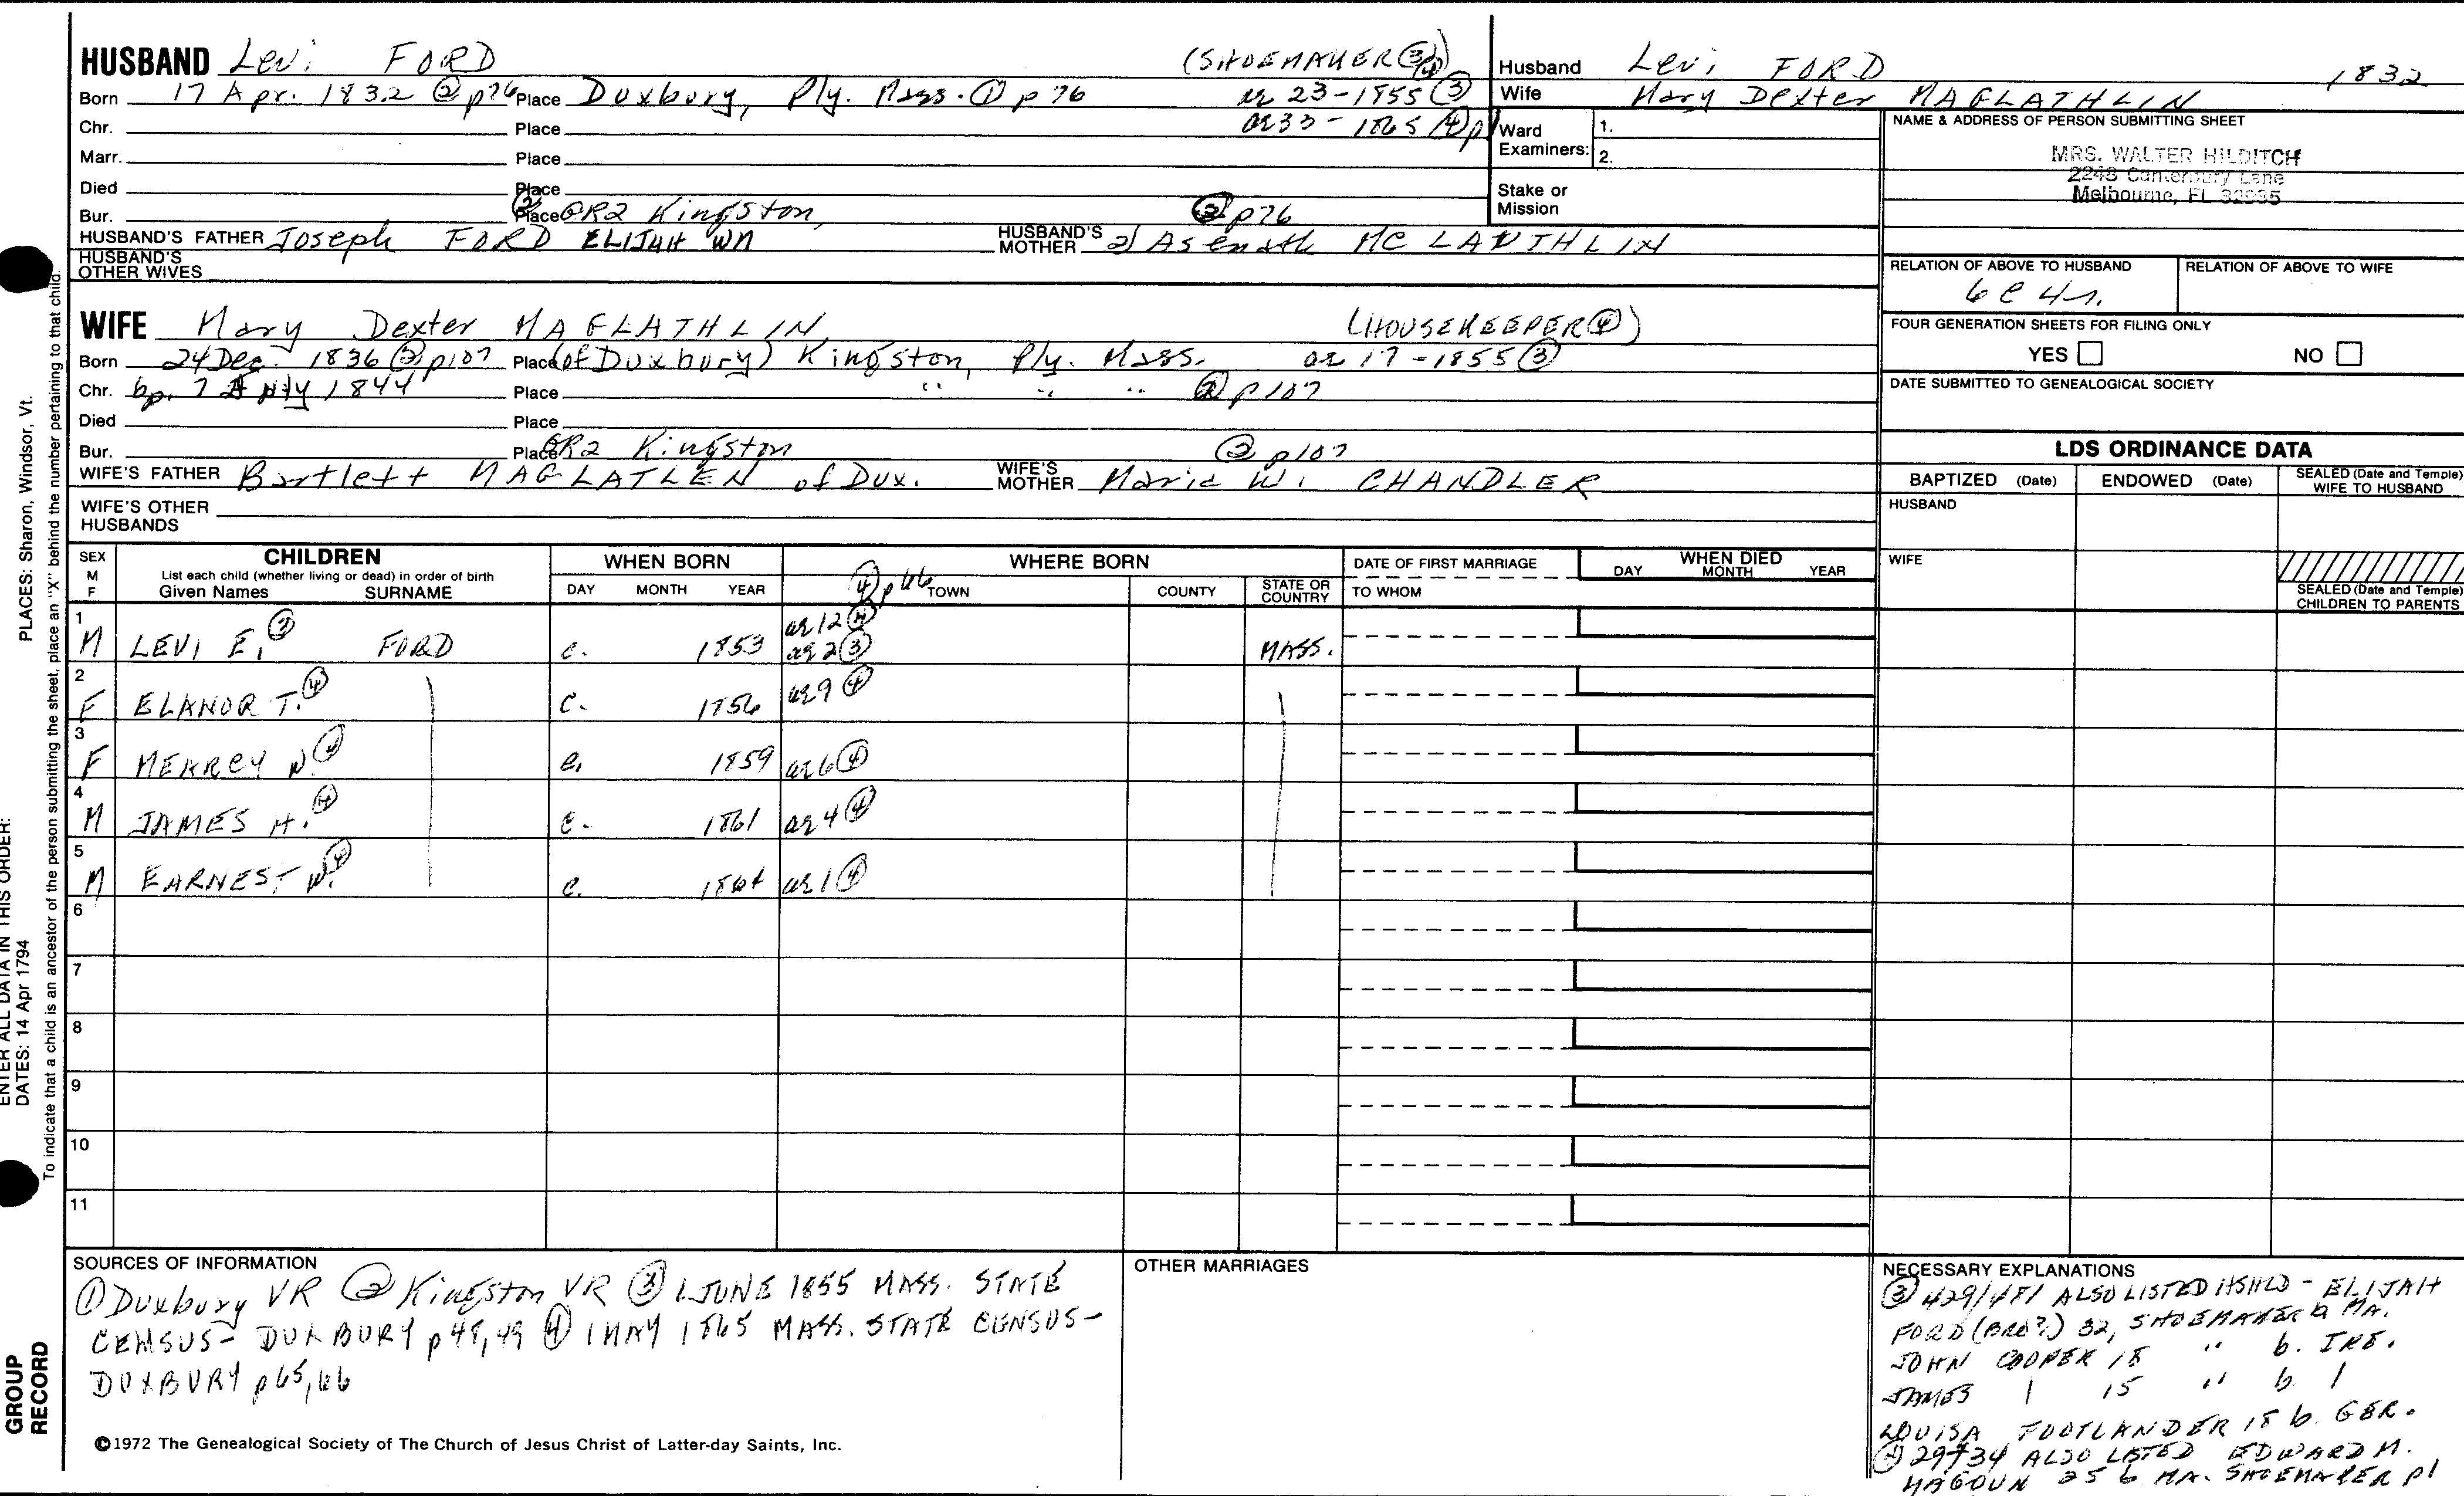 HUSBAND Levi FORD (SHOEMAKER ③④)
Born 17 Apr. 1832 ② p76 Place Duxbury, Ply. Mass. ① p 76 ae 23-1855 ③
Chr. Place ae 33-1865 ④ p1
Marr. Place
Died Place
Bur. Place ② GR2 Kingston, ② p76
HUSBAND'S FATHER Joseph FORD ELIJAH WM HUSBAND'S MOTHER 2) Asenath MC LAUTHLIN
HUSBAND'S OTHER WIVES
WIFE Mary Dexter MAGLATHLIN (HOUSEKEEPER ④)
Born 24 Dec. 1836 ② p107 Place (of Duxbury) Kingston, Ply. Mass. ae 17-1855 ③
Chr. bp. 7 1844 Place " " " ② p107
Died Place
Bur. Place GR2 Kingston ② p107
WIFE'S FATHER Bartlett MAGLATLEN of Dux. WIFE'S MOTHER Maria W. CHANDLER
WIFE'S OTHER HUSBANDS
Husband Levi FORD 1832
Wife Mary Dexter MAGLATHLIN
Ward Examiners: 1. 2.
Stake or Mission
NAME & ADDRESS OF PERSON SUBMITTING SHEET
MRS. WALTER HILDITCH
2248 Canterbury Lane
Melbourne, FL 32935
RELATION OF ABOVE TO HUSBAND RELATION OF ABOVE TO WIFE
6 C 4 r.
FOUR GENERATION SHEETS FOR FILING ONLY
YES NO
DATE SUBMITTED TO GENEALOGICAL SOCIETY
LDS ORDINANCE DATA
BAPTIZED (Date) ENDOWED (Date) SEALED (Date and Temple) WIFE TO HUSBAND
HUSBAND
WIFE
SEALED (Date and Temple) CHILDREN TO PARENTS
SEX M F CHILDREN WHEN BORN WHERE BORN DATE OF FIRST MARRIAGE WHEN DIED
List each child (whether living or dead) in order of birth
Given Names SURNAME DAY MONTH YEAR ④ p66 TOWN COUNTY STATE OR COUNTRY TO WHOM DAY MONTH YEAR
1 M LEVI E. ③ FORD c. 1853 ae 12 ④ ae 2 ③ MASS.
2 F ELANOR T. ④ c. 1856 ae 9 ④
3 F MEHRCY N. ④ c. 1859 ae 6 ④
4 M JAMES H. ④ c. 1861 ae 4 ④
5 M EARNEST W. ④ c. 1864 ae 1 ④
6
7
8
9
10
11
SOURCES OF INFORMATION
① Duxbury VR ② Kingston VR ③ 1 JUNE 1855 MASS. STATE
CENSUS - DUXBURY p 48,49 ④ 1 MAY 1865 MASS. STATE CENSUS -
DUXBURY p 65,66
©1972 The Genealogical Society of The Church of Jesus Christ of Latter-day Saints, Inc.
OTHER MARRIAGES
NECESSARY EXPLANATIONS
③ 429/481 ALSO LISTED HSHLD - ELIJAH
FORD (BRO?) 32, SHOEMAKER b MA.
JOHN COOPER 18 " b. IRE.
JAMES | 15 " b. |
LOUISA FOOTLANDER 18 b. GER.
④ 29/34 ALSO LISTED EDWARD M.
MAGOUN 25 b MA. SHOEMAKER p1
PLACES: Sharon, Windsor, Vt.
ENTER ALL DATA IN THIS ORDER:
DATES: 14 Apr 1794
To indicate that a child is an ancestor of the person submitting the sheet, place an "X" behind the number pertaining to that child.
GROUP
RECORD